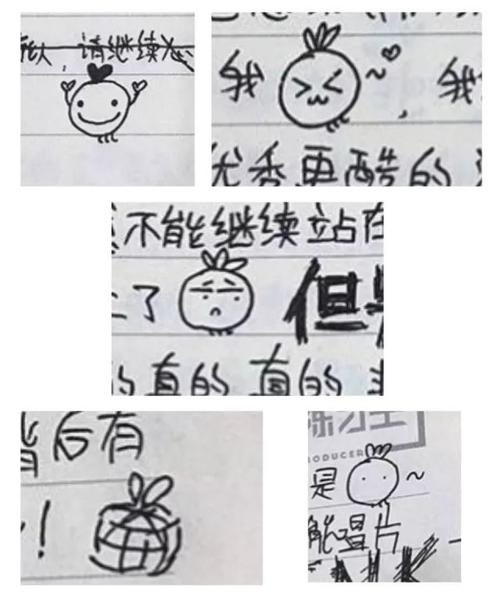 请继续
我
我
优秀更酷的
不能继续站在
了
但
的真的 真的
背后有
！
ODUCER
是
～
能唱片